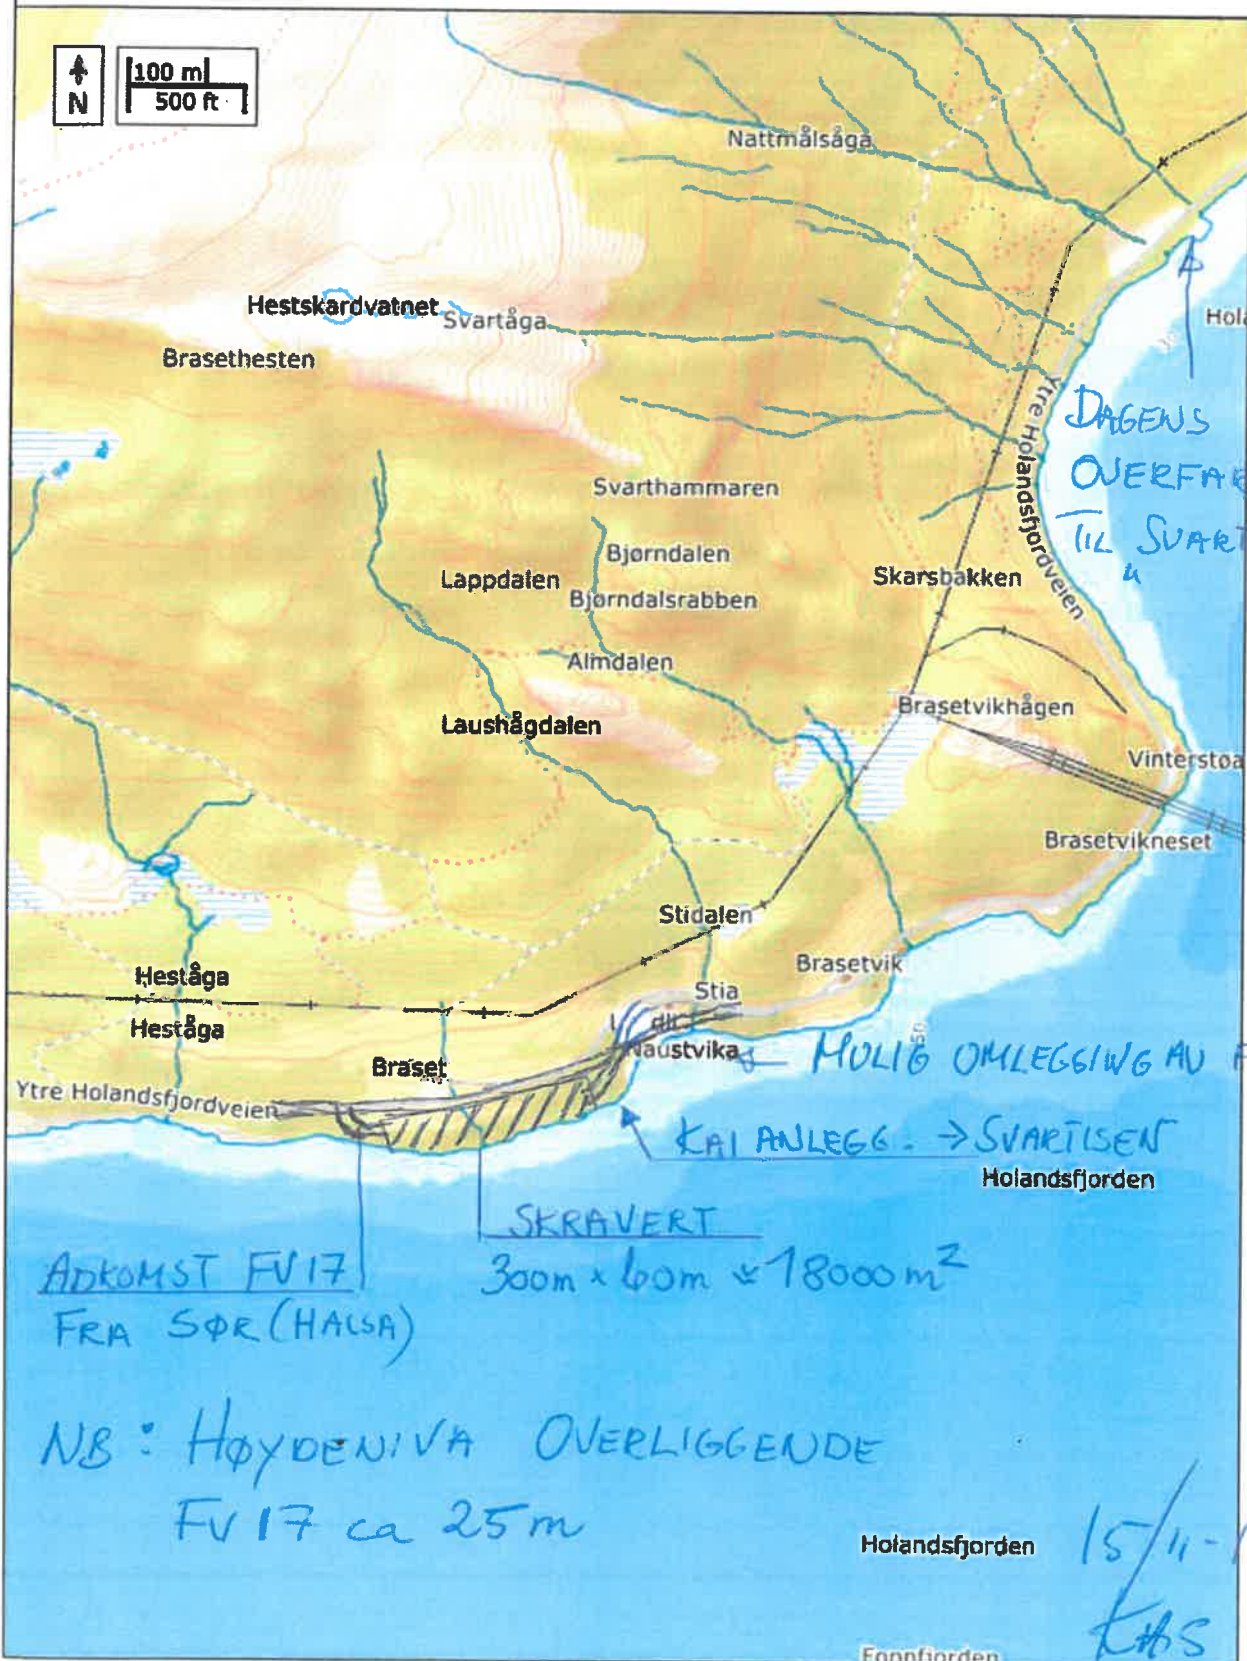 100 m
N
500 ft
Nattmålsåga
Hestskardvatnet
Svartåga
Brasethesten
Ytre Holandsfjordveien
DAGENS
OVERFAR
TIL SVART
Svarthammaren
Bjørndalen
Lappdalen
Bjørndalsrabben
Skarsbakken
Almdalen
Laushågdalen
Brasetvikhågen
Vinterstøa
Brasetvikneset
Stidalen
Brasetvik
Heståga
Heståga
Stia
Naustvika
MULIG OMLEGGING AV F
Braset
Ytre Holandsfjordveien
KAI ANLEGG. → SVARTISEN
Holandsfjorden
SKRAVERT
300m x 60m ≈ 18000 m²
ADKOMST FV17
FRA SØR (HALSA)
NB: HØYDENIVA OVERLIGGENDE
FV 17 ca 25 m
Holandsfjorden
15/11-1